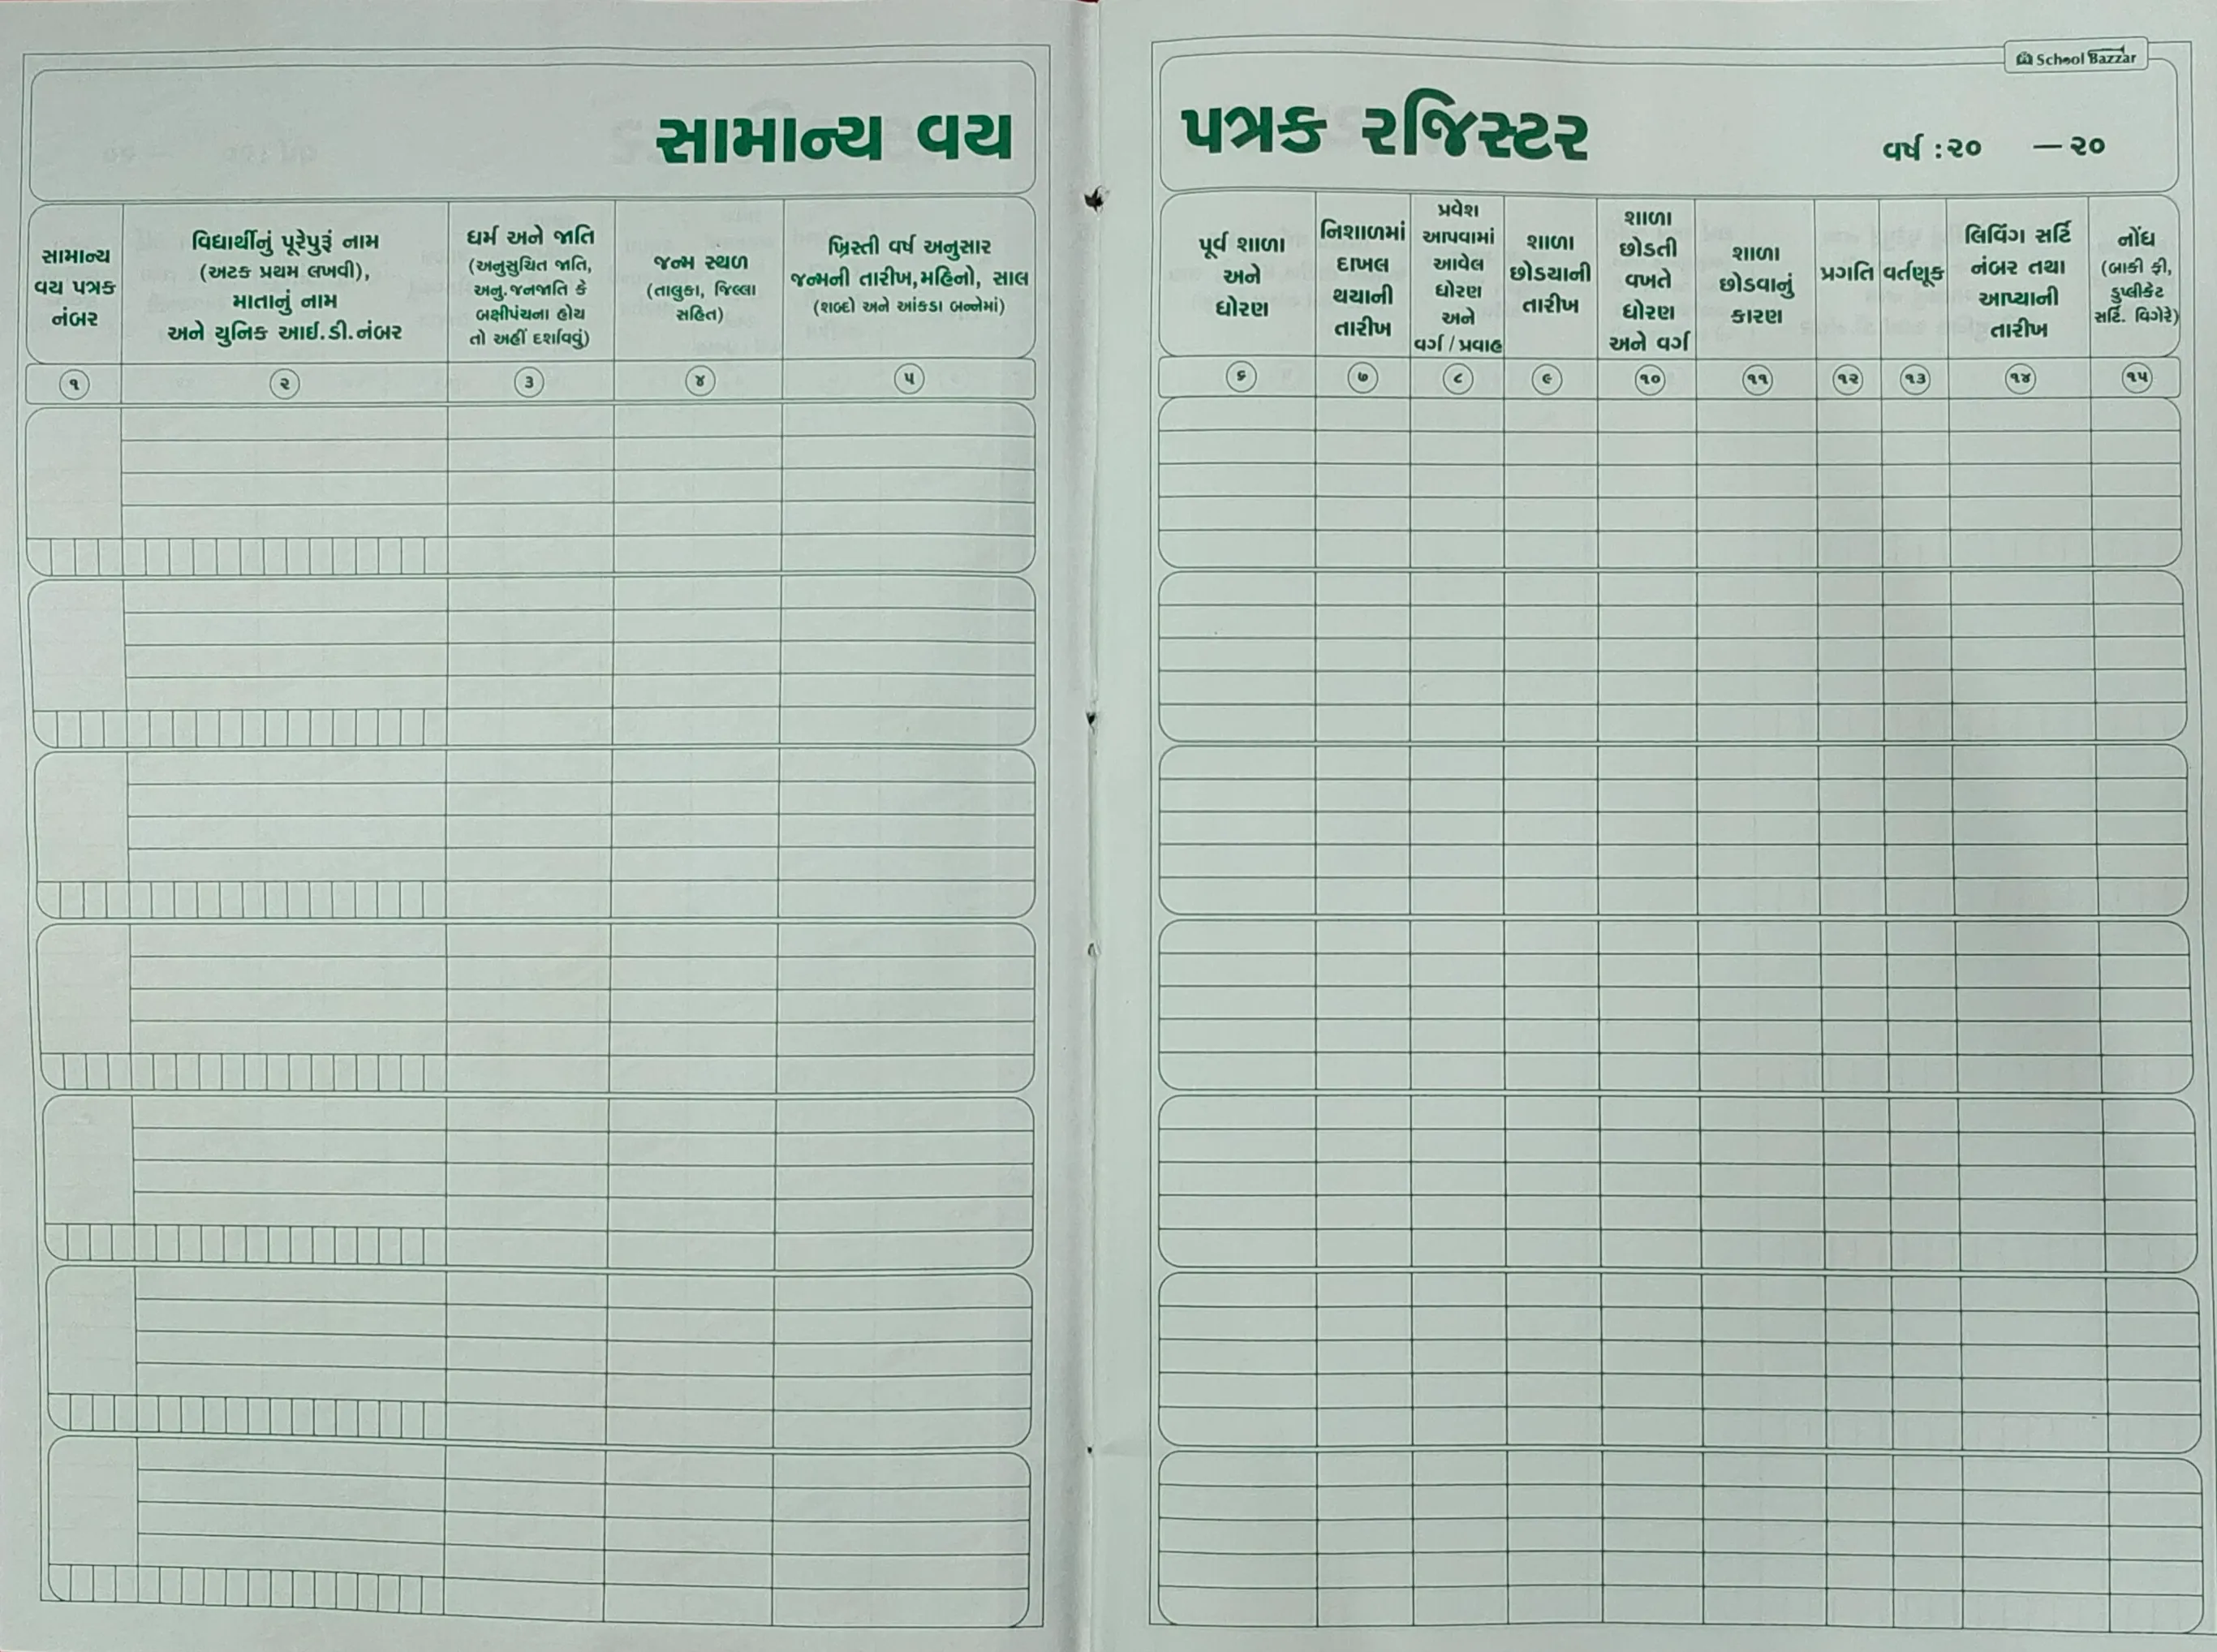 School Bazzar
સામાન્ય વય પત્રક રજિસ્ટર
વર્ષ : ૨૦ — ૨૦
સામાન્ય
વય પત્રક
નંબર
વિદ્યાર્થીનું પૂરેપુરૂં નામ
(અટક પ્રથમ લખવી),
માતાનું નામ
અને યુનિક આઈ.ડી.નંબર
ધર્મ અને જાતિ
(અનુસુચિત જાતિ,
અનુ.જનજાતિ કે
બક્ષીપંચના હોય
તો અહીં દર્શાવવું)
જન્મ સ્થળ
(તાલુકા, જિલ્લા
સહિત)
ખ્રિસ્તી વર્ષ અનુસાર
જન્મની તારીખ,મહિનો, સાલ
(શબ્દો અને આંકડા બન્નેમાં)
પૂર્વ શાળા
અને
ધોરણ
નિશાળમાં
દાખલ
થયાની
તારીખ
પ્રવેશ
આપવામાં
આવેલ
ધોરણ
અને
વર્ગ / પ્રવાહ
શાળા
છોડયાની
તારીખ
શાળા
છોડતી
વખતે
ધોરણ
અને વર્ગ
શાળા
છોડવાનું
કારણ
પ્રગતિ
વર્તણૂક
લિવિંગ સર્ટિ
નંબર તથા
આપ્યાની
તારીખ
નોંધ
(બાકી ફી,
ડુપ્લીકેટ
સર્ટિ. વિગેરે)
૧ ૨ ૩ ૪ ૫ ૬ ૭ ૮ ૯ ૧૦ ૧૧ ૧૨ ૧૩ ૧૪ ૧૫